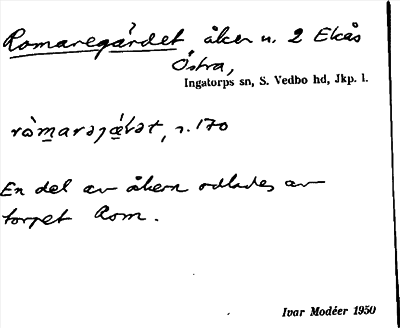 Romaregärdet, åker n. 2 Ekås
Östra,
Ingatorps sn, S. Vedbo hd, Jkp. l.
ròmarəjǽɹət, n. 170
En del av åkern odlades av
torpet Rom.
Ivar Modéer 1950